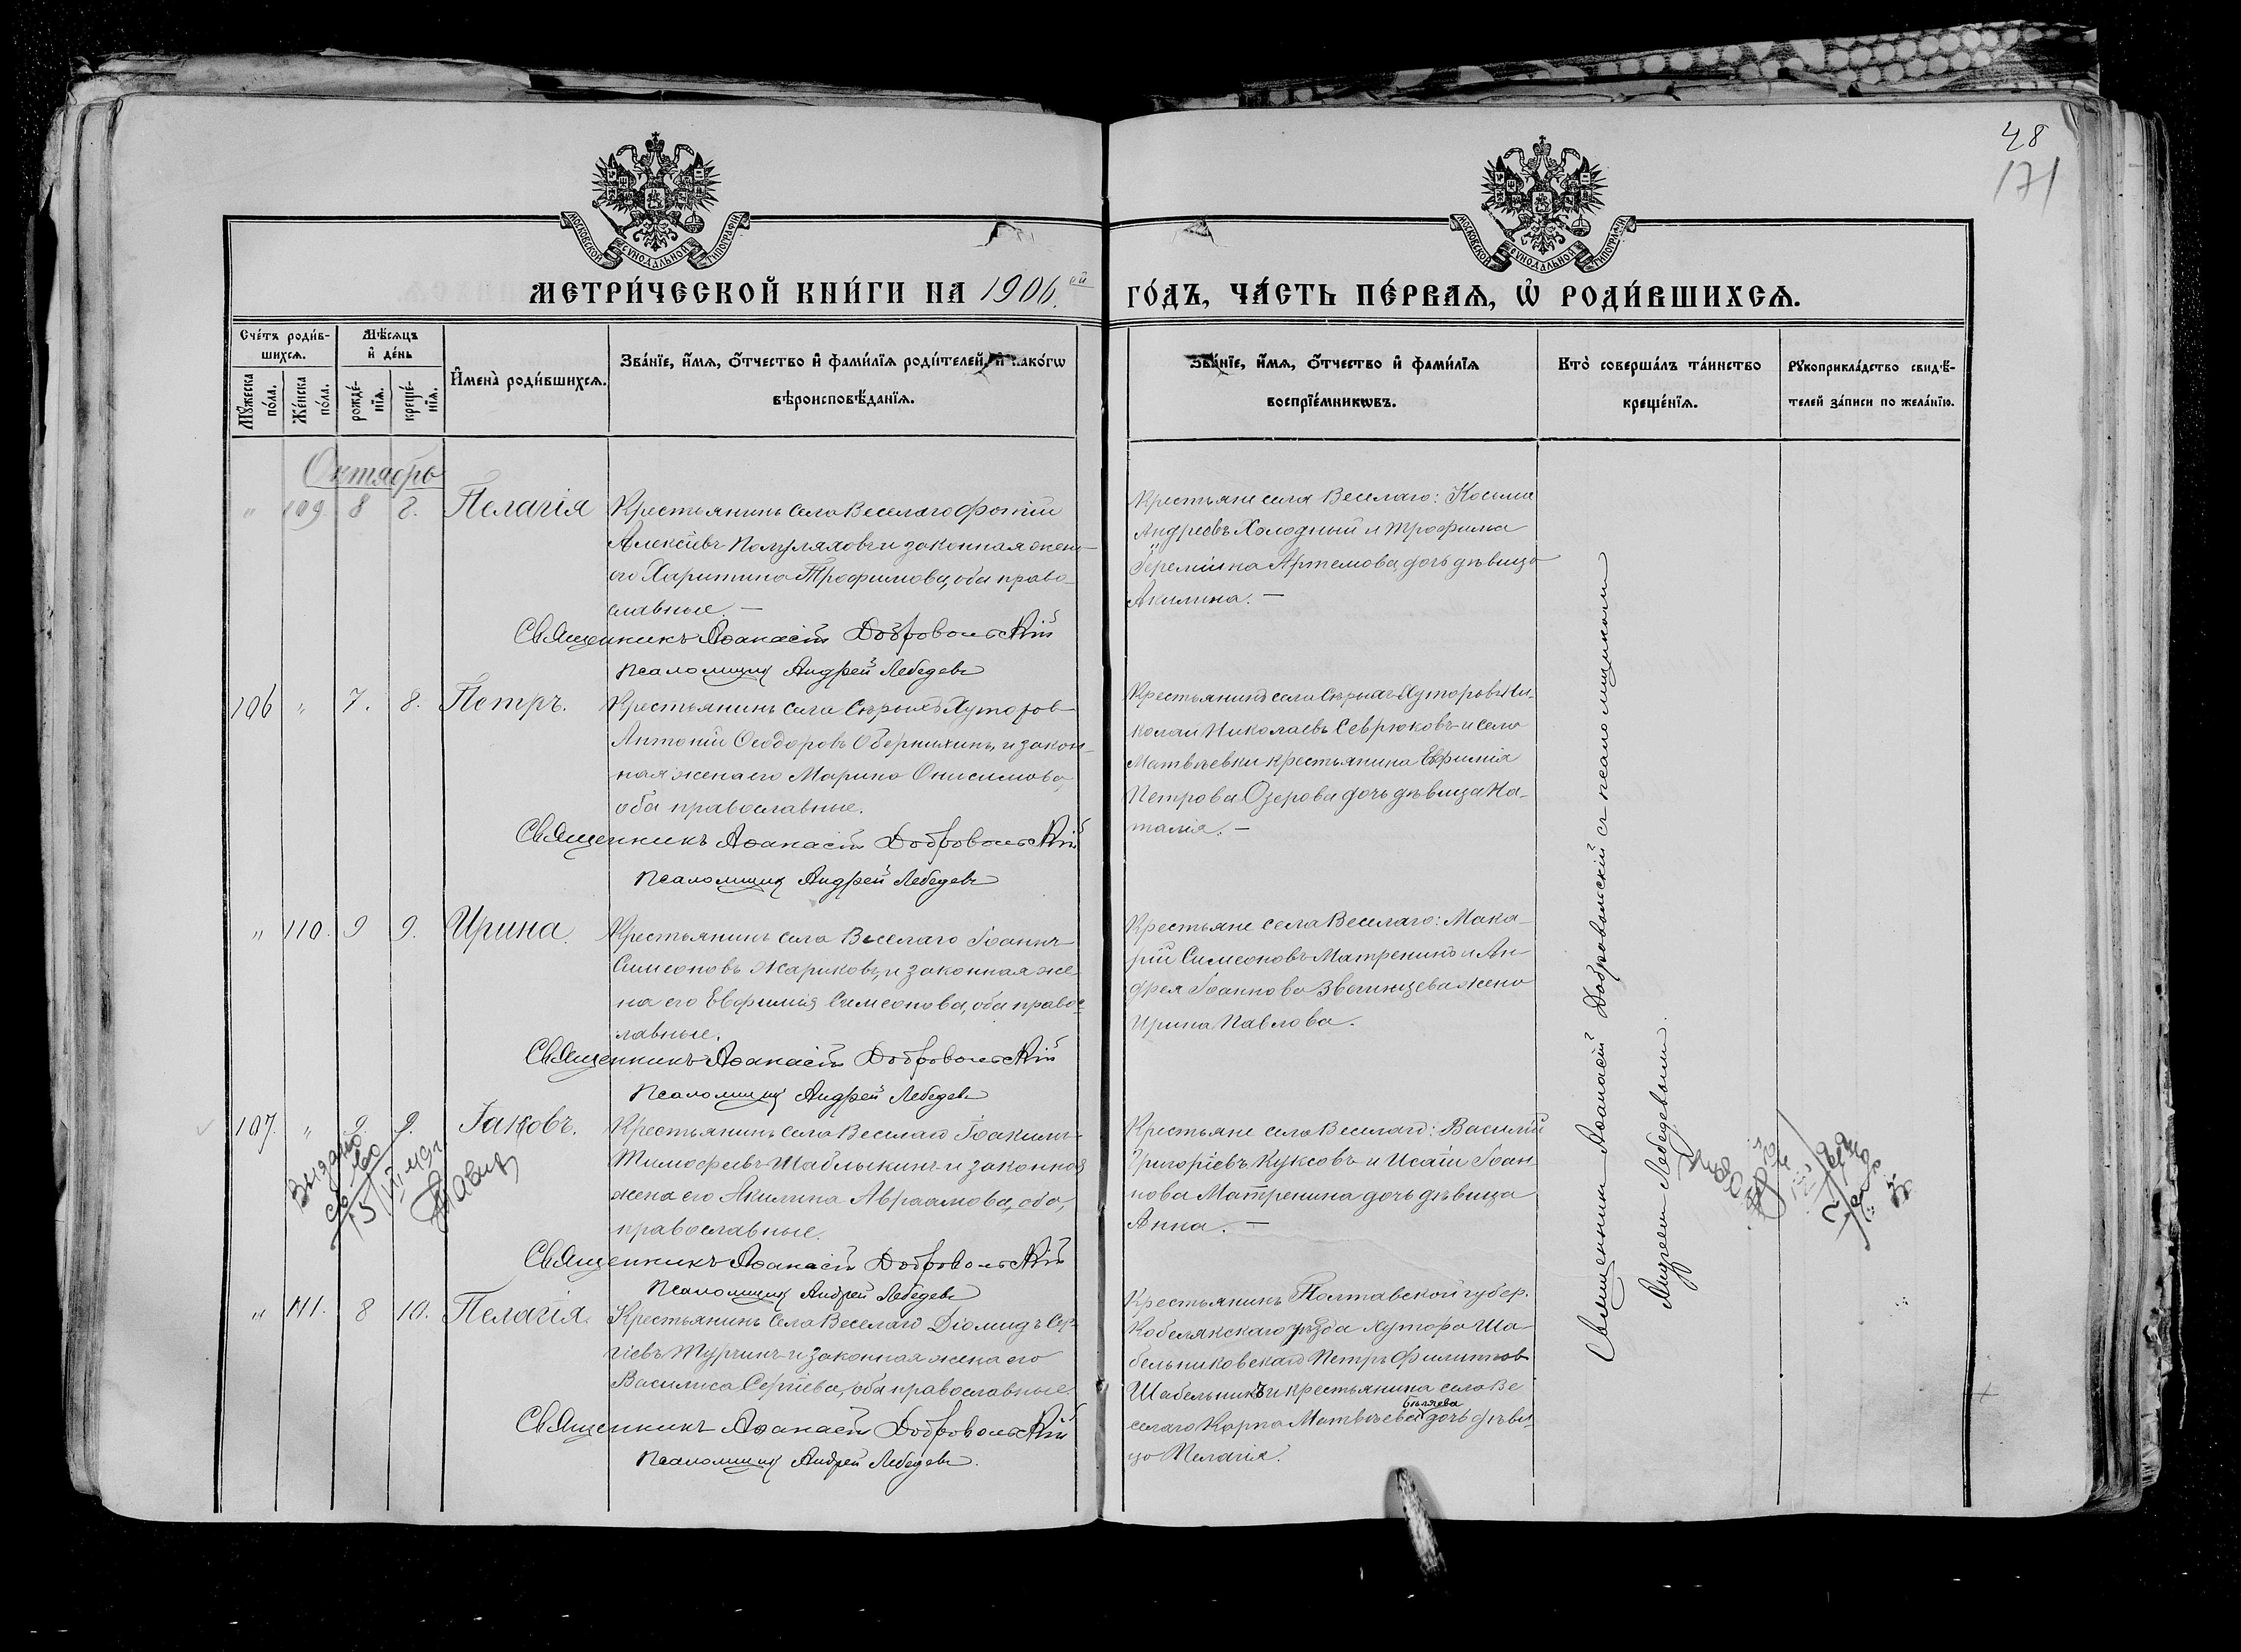 48
171
МОСКОВСКОЙ СѴНОДАЛЬНОЙ ТИПОГРАФІИ
МОСКОВСКОЙ СѴНОДАЛЬНОЙ ТИПОГРАФІИ
МЕТРИ́ЧЕСКОЙ КНИ́ГИ НА 1906.ой
ГО́ДЪ, ЧА́СТЬ ПЕ́РВАѦ, Ѡ҆ РОДИ́ВШИХСѦ.
Сче́тъ роди́в-
шихсѧ.
Мꙋ́жеска
по́ла.
Же́нска
по́ла.
Мѣ́сѧцъ
и҆ де́нь
рожде́-
нїѧ.
креще́-
нїѧ.
И҆мена̀ роди́вшихсѧ.
Зва́нїе, и҆́мѧ, ѻ҆́тчество и҆ фами́лїѧ роди́телей, и҆ како́гѡ
вѣроисповѣ́данїѧ.
Зва́нїе, и҆́мѧ, ѻ҆́тчество и҆ фами́лїѧ
воспрїе́мникѡвъ.
Кто̀ соверша́лъ та́инство
креще́нїѧ.
Рꙋкоприкла́дство свидѣ́-
телей за́писи по жела́нїю.
Октябрь
" 109. 8 8. Пелагія
Крестьянинъ села Веселаго Фотій
Алексіевъ Полуляховъ и законная жена
его Харитина Трофимова, оба право-
славные. —
Священникъ Аѳанасій Добровольскій
Псаломщикъ Андрей Лебедевъ
Крестьяне села Веселаго: Косьма
Андреевъ Холодный и Трофима
Артемова дочь дѣвица
Акилина. —
106 " 7. 8. Петръ.
Крестьянинъ села Сѣрыхъ Хуторовъ
Антоній Ѳеодоровъ Оберникинъ, и закон-
ная жена его Марина Онисимова,
оба православные.
Священникъ Аѳанасій Добровольскій
Псаломщикъ Андрей Лебедевъ
Крестьянинъ села Сѣрыхъ Хуторовъ Ни-
колай Николаевъ Севрюковъ и села
Матвѣевки крестьянина Евфимія
Петрова Озерова дочь дѣвица На-
талія. —
" 110. 9 9. Ирина.
Крестьянинъ села Веселаго Іоаннъ
Симеоновъ Жариковъ, и законная же-
на его Евфимія Симеонова, оба правос-
лавные.
Священникъ Аѳанасій Добровольскій
Псаломщикъ Андрей Лебедевъ
Крестьяне села Веселаго: Мака-
рій Симеоновъ Матренинъ и Ан-
дрея Іоаннова Звегинцева жена
Ирина Павлова.
107. " 9. 9. Іаковъ.
Крестьянинъ села Веселаго Іоакимъ
Тимофеевъ Шаблыкинъ и законная
жена его Акилина Авраамова, оба,
православные.
Священникъ Аѳанасій Добровольскій
Псаломщикъ Андрей Лебедевъ
Крестьяне села Веселаго: Василій
Григоріевъ Куксовъ и Исаіи Іоан-
нова Матренина дочь дѣвица
Анна. —
" 111. 8 10. Пелагія.
Крестьянинъ села Веселаго Діомидъ Сер-
гіевъ Турчинъ и законная жена его
Василиса Сергіева, оба православные.
Священникъ Аѳанасій Добровольскій
Псаломщикъ Андрей Лебедевъ.
Крестьянинъ Полтавской губер.
Кобелякскаго уѣзда хутора Ша-
бельниковскаго Петръ Филиппов
Шабельникъ и крестьянина села Ве
селаго Карпа Матвѣева Бѣляева дочь дѣви-
ца Пелагія.
Священникъ Аѳанасій Добровольскій съ псаломщикомъ
Андреемъ Лебедевымъ.